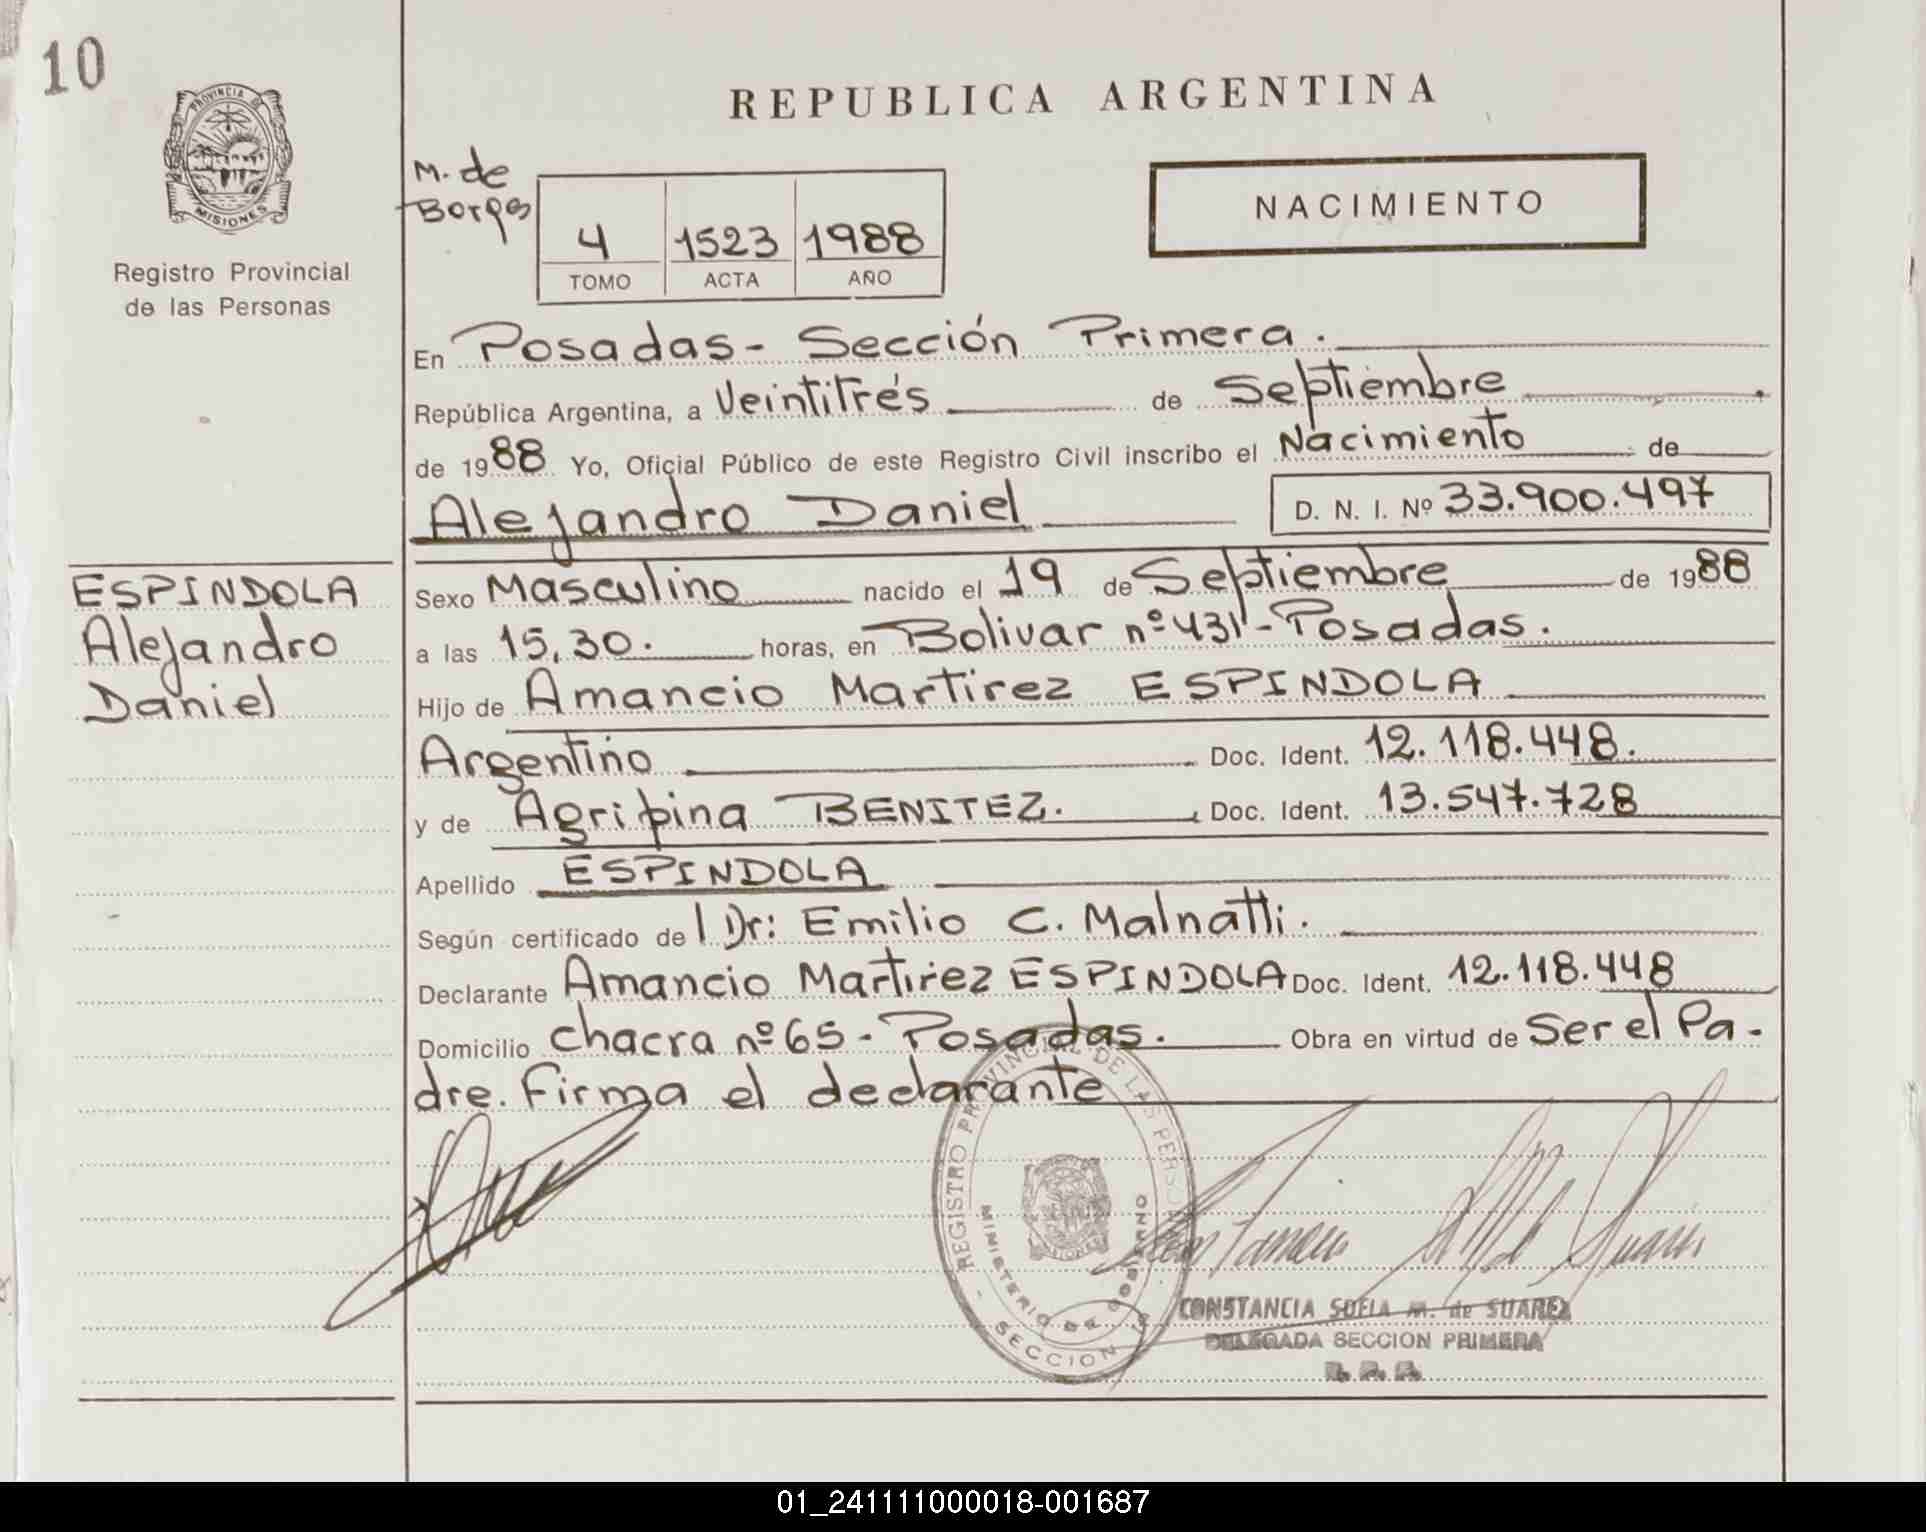 10
PROVINCIA DE
MISIONES
Registro Provincial
de las Personas
REPUBLICA ARGENTINA
M. de
Borges
4 1523 1988
TOMO ACTA AÑO
NACIMIENTO
En Posadas - Sección Primera.
República Argentina, a Veintitrés de Septiembre.
de 1988 Yo, Oficial Público de este Registro Civil inscribo el Nacimiento de
Alejandro Daniel D. N. I. Nº 33.900.497
ESPINDOLA
Alejandro
Daniel
Sexo Masculino nacido el 19 de Septiembre de 1988
a las 15,30. horas, en Bolivar nº 431 - Posadas.
Hijo de Amancio Martirez ESPINDOLA
Argentino Doc. Ident. 12.118.448.
y de Agripina BENITEZ. Doc. Ident. 13.547.728
Apellido ESPINDOLA
Según certificado de l Dr: Emilio C. Malnatti.
Declarante Amancio Martirez ESPINDOLA Doc. Ident. 12.118.448
Domicilio chacra nº 65 - Posadas. Obra en virtud de Ser el Pa-
dre. Firma el declarante
REGISTRO PROVINCIAL DE LAS PERSONAS
MINISTERIO DE GOBIERNO
MISIONES
SECCION 1ª
CONSTANCIA SUELA M. de SUAREZ
DELEGADA SECCION PRIMERA
01_241111000018-001687